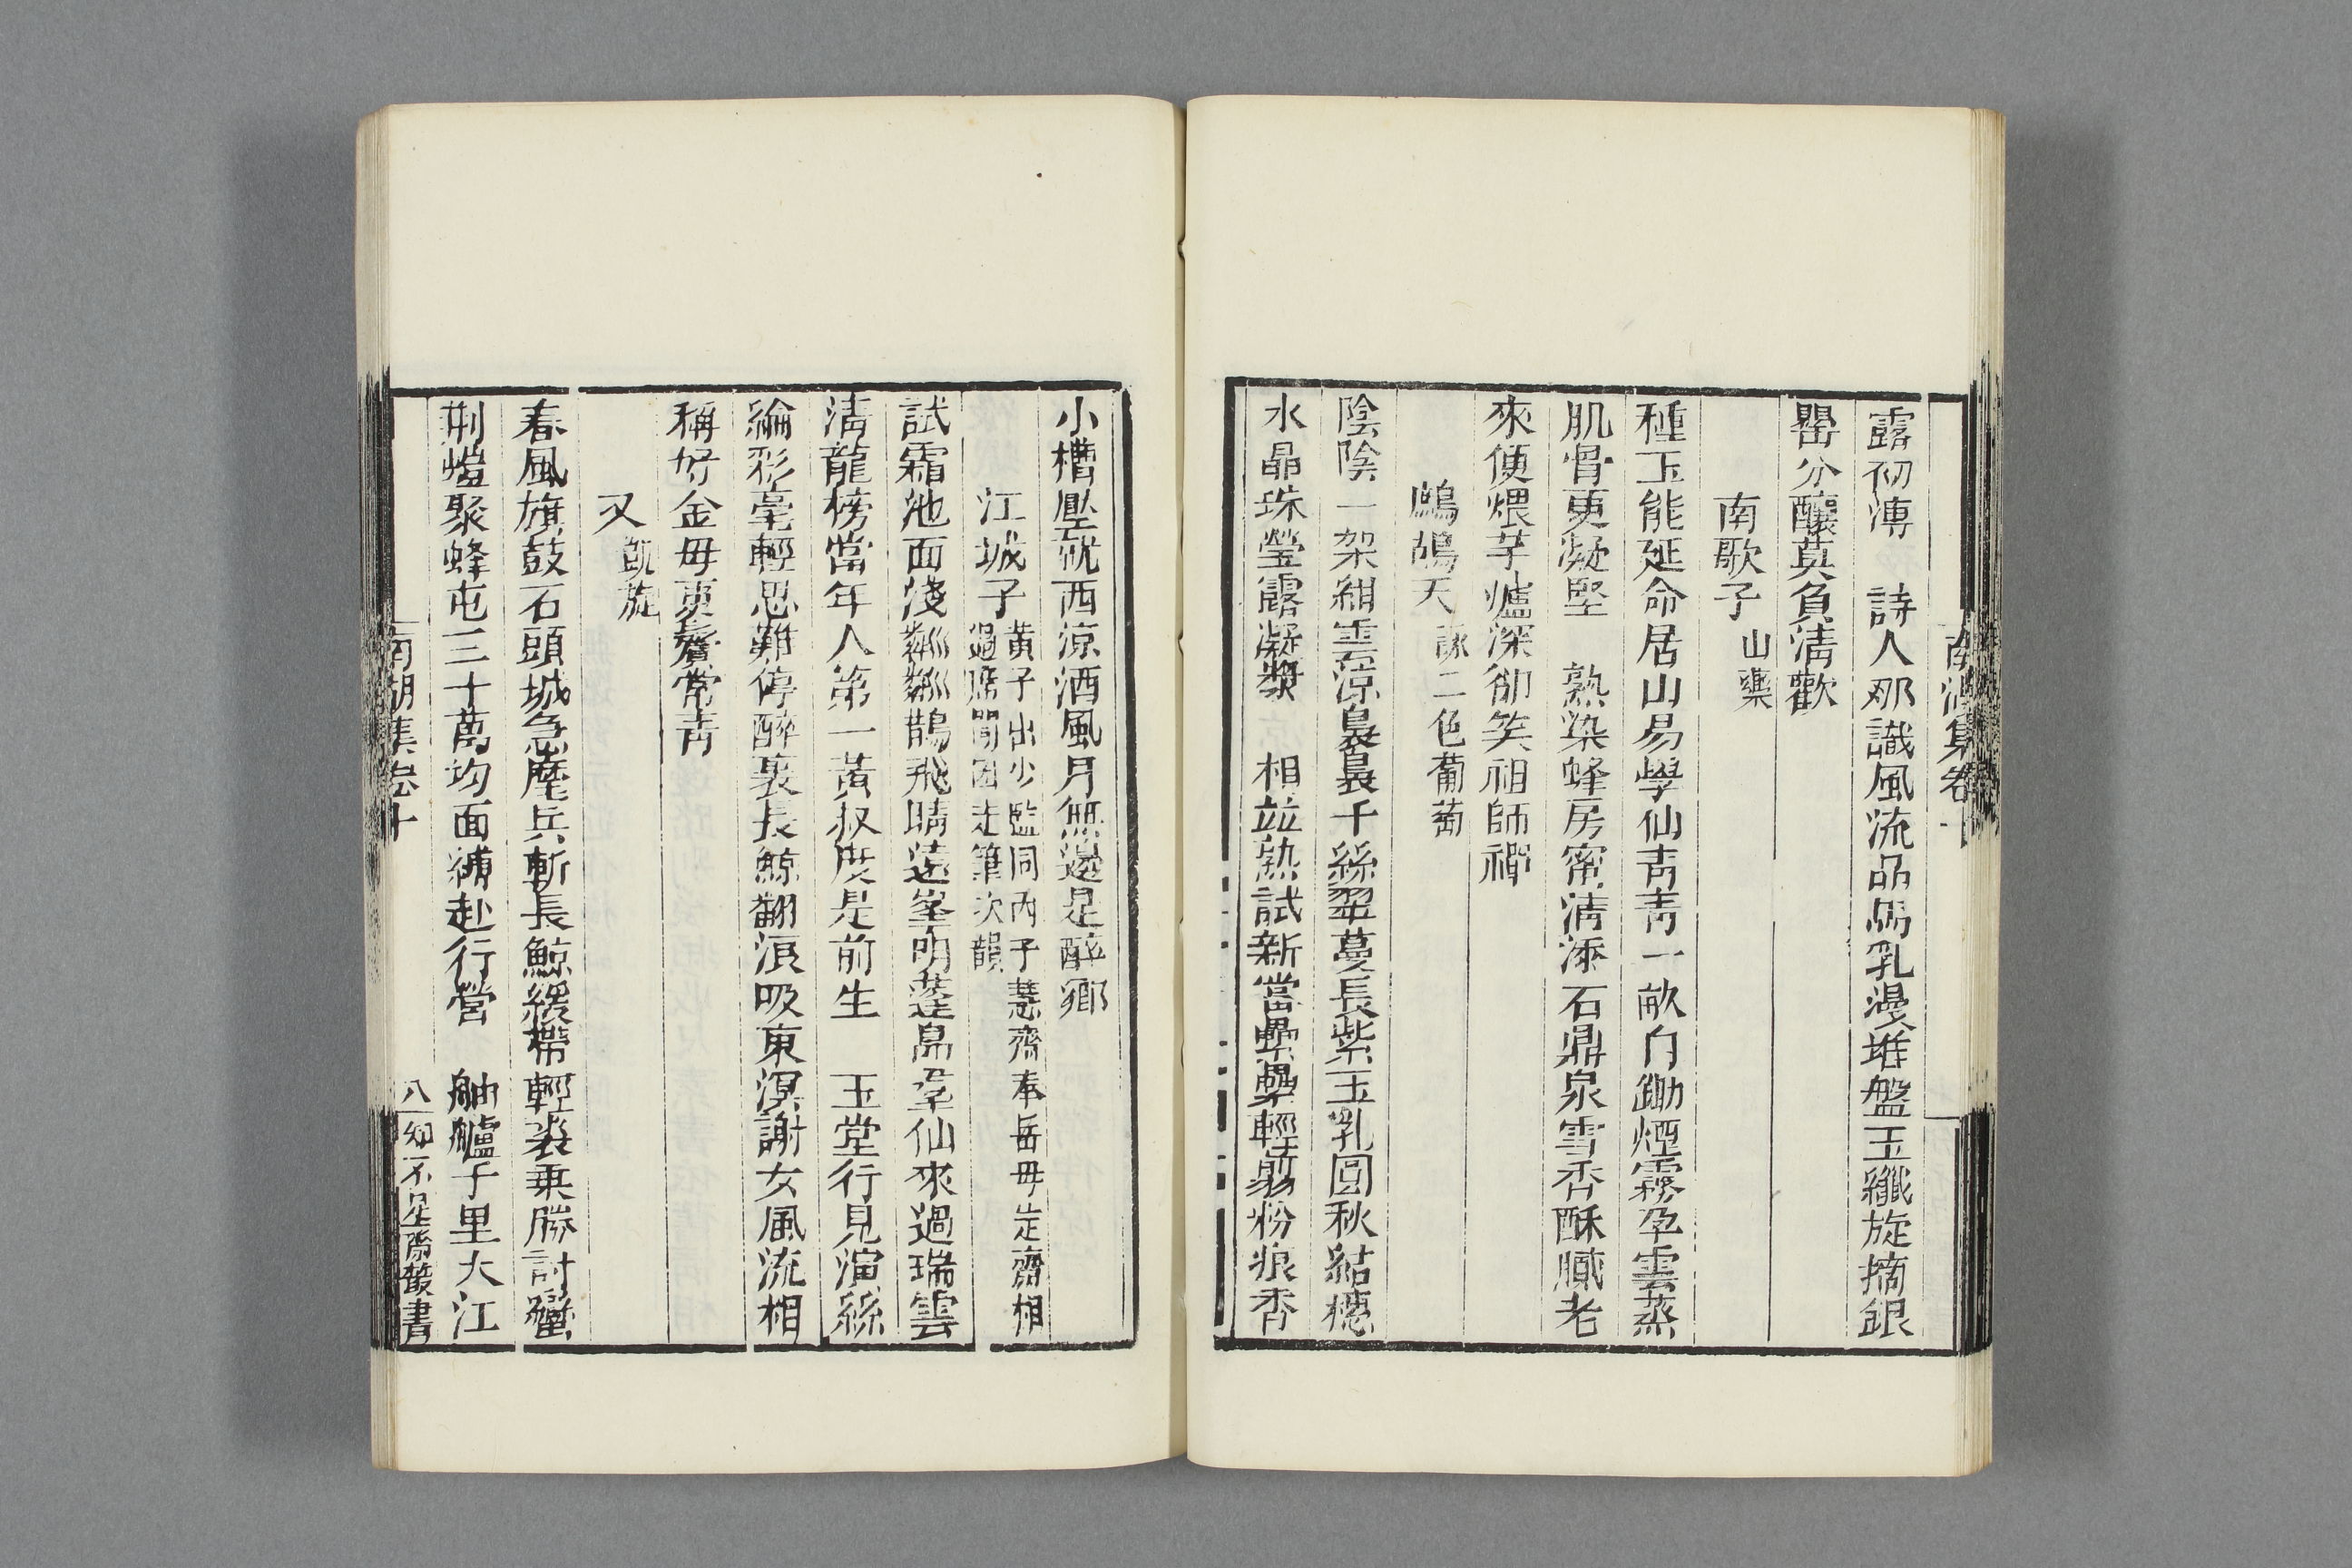 南湖集卷十
露初漙　詩人那識風流品馬乳漫堆盤玉纖旋摘銀
罌分釀莫負淸歡
南歌子山藥
種玉能延命居山易學仙靑靑一畝自鋤煙霧孕雲蒸
肌骨更凝堅　熟染蜂房蜜淸添石鼎泉雪香酥膩老
來便煨芋爐深卻笑祖師禪
鷓鴣天詠二色葡萄
陰陰一架紺雲涼裊裊千絲翠蔓長紫玉乳圓秋結穗
水晶珠瑩露凝漿　相並熟試新嘗纍纍輕翦粉痕香
小槽壓就西涼酒風月無邊是醉鄉
江城子黃子出少監同丙子慧齋奉岳母定齋相
過席間因走筆次韻
試霜池面淺粼粼鵲飛晴遠峯明蓬島羣仙來過瑞雲
淸龍榜當年人第一黃叔度是前生　玉堂行見演絲
綸彩毫輕思難停醉裏長鯨翻浪吸東溟謝女風流相
稱好金母更鬢常靑
又凱旋
春風旗鼓石頭城急麾兵斬長鯨緩帶輕裘乘勝討蠻
荆蟻聚蜂屯三十萬均面縛赴行營　舳艫千里大江
南湖集卷十
八　知不足齋叢書